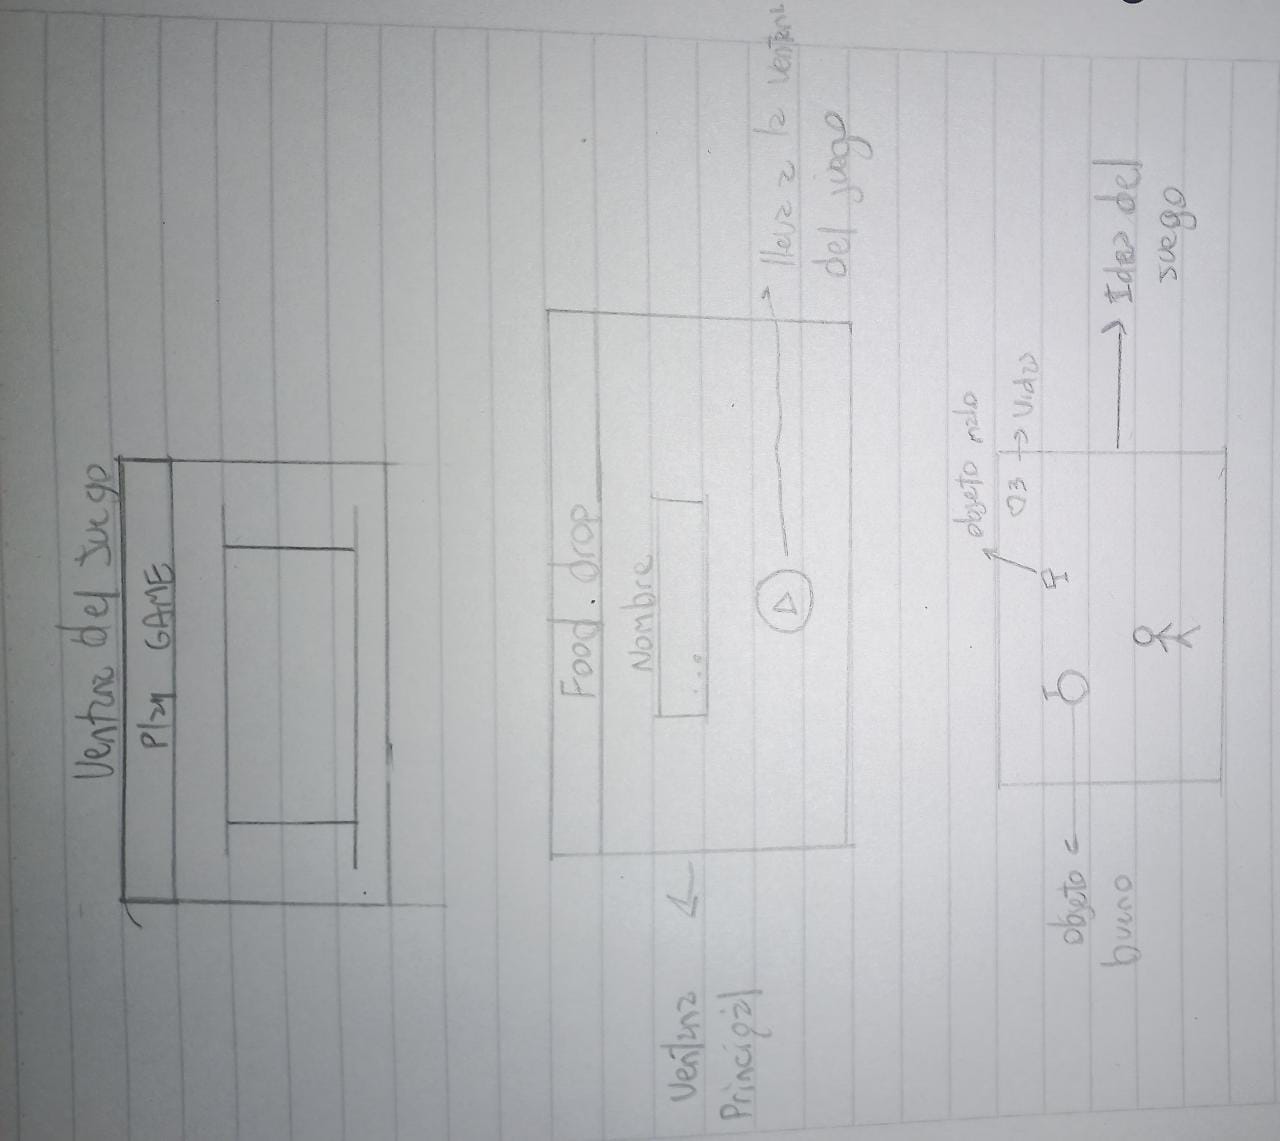 Ventana del Juego
Play GAME
Food.drop
Nombre
...
Ventana
Principal
lleva a la ventana
del juego
objeto malo
♡3 → Vidas
objeto
bueno
Idea del
juego